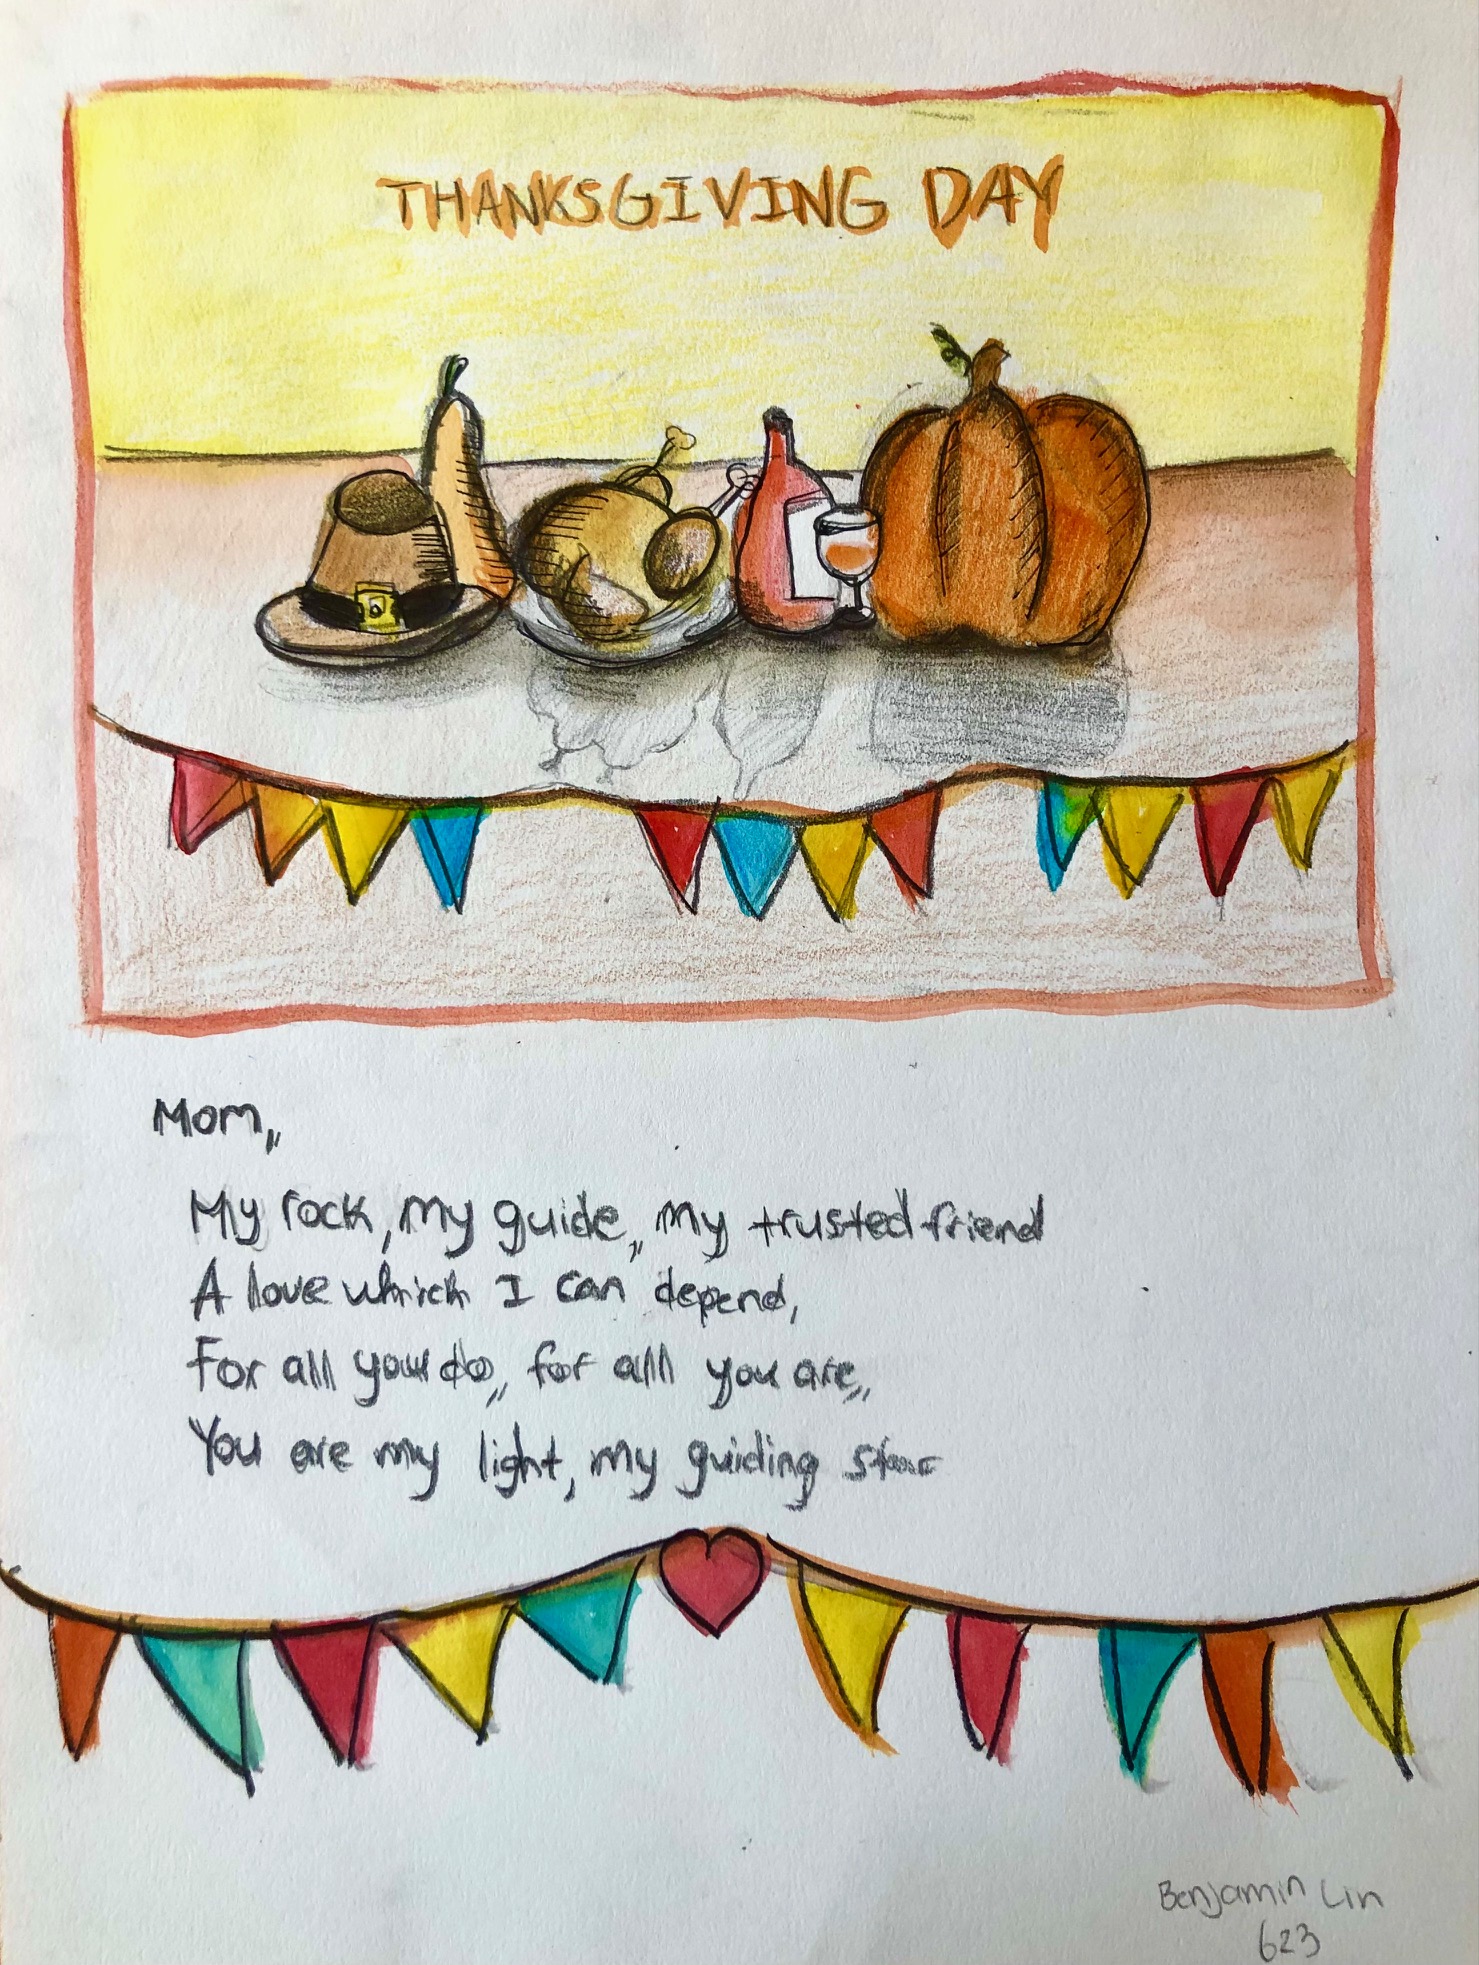 THANKSGIVING DAY
Mom,,
My rock, my guide,, my trusted friend
A love which I can depend,
For all you do,, for all you are,,
You are my light, my guiding star
Benjamin Lin
623